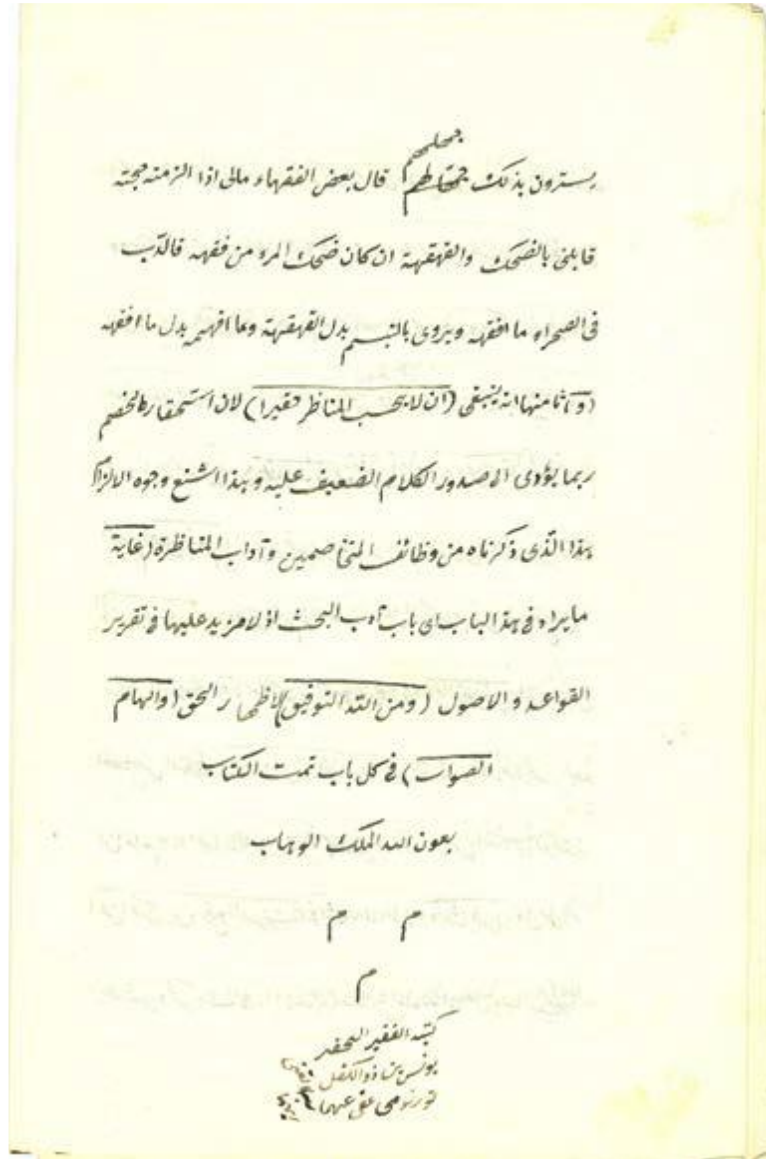 جهلهم
يسترون بذلك جهالتهم قال بعض الفقهاء مالى اذا الزمته حجته
قابلنى بالضحك والقهقهة ان كان ضحك المرء من فقهه فالدب
فى الصحراء ما افقهه ويروى بالتبسم بدل القهقهة وما افهمه بدل ما افقهه
(و) ثامنها انه ينبغى (ان لا يحسب المناظر حقيرا) لان استحقار الخصم
ربما يؤدى الى صدور الكلام الضعيف عليه وهذا اشنع وجوه الالزام
هذا الذى ذكرناه من وظائف المتخاصمين وآداب المناظرة (غاية
ما يراد فى هذا الباب اى باب آدب البحث اذ لا مزيد عليها فى تقرير
القواعد و الاصول (ومن الله التوفيق) لاظهار الحق (والهام
الصواب) فى كل باب تمت الكتاب
بعون الله الملك الوهاب
م م
م
كتبه الفقير الحقير
يونس بن ذوالكفل
عفى عنهما